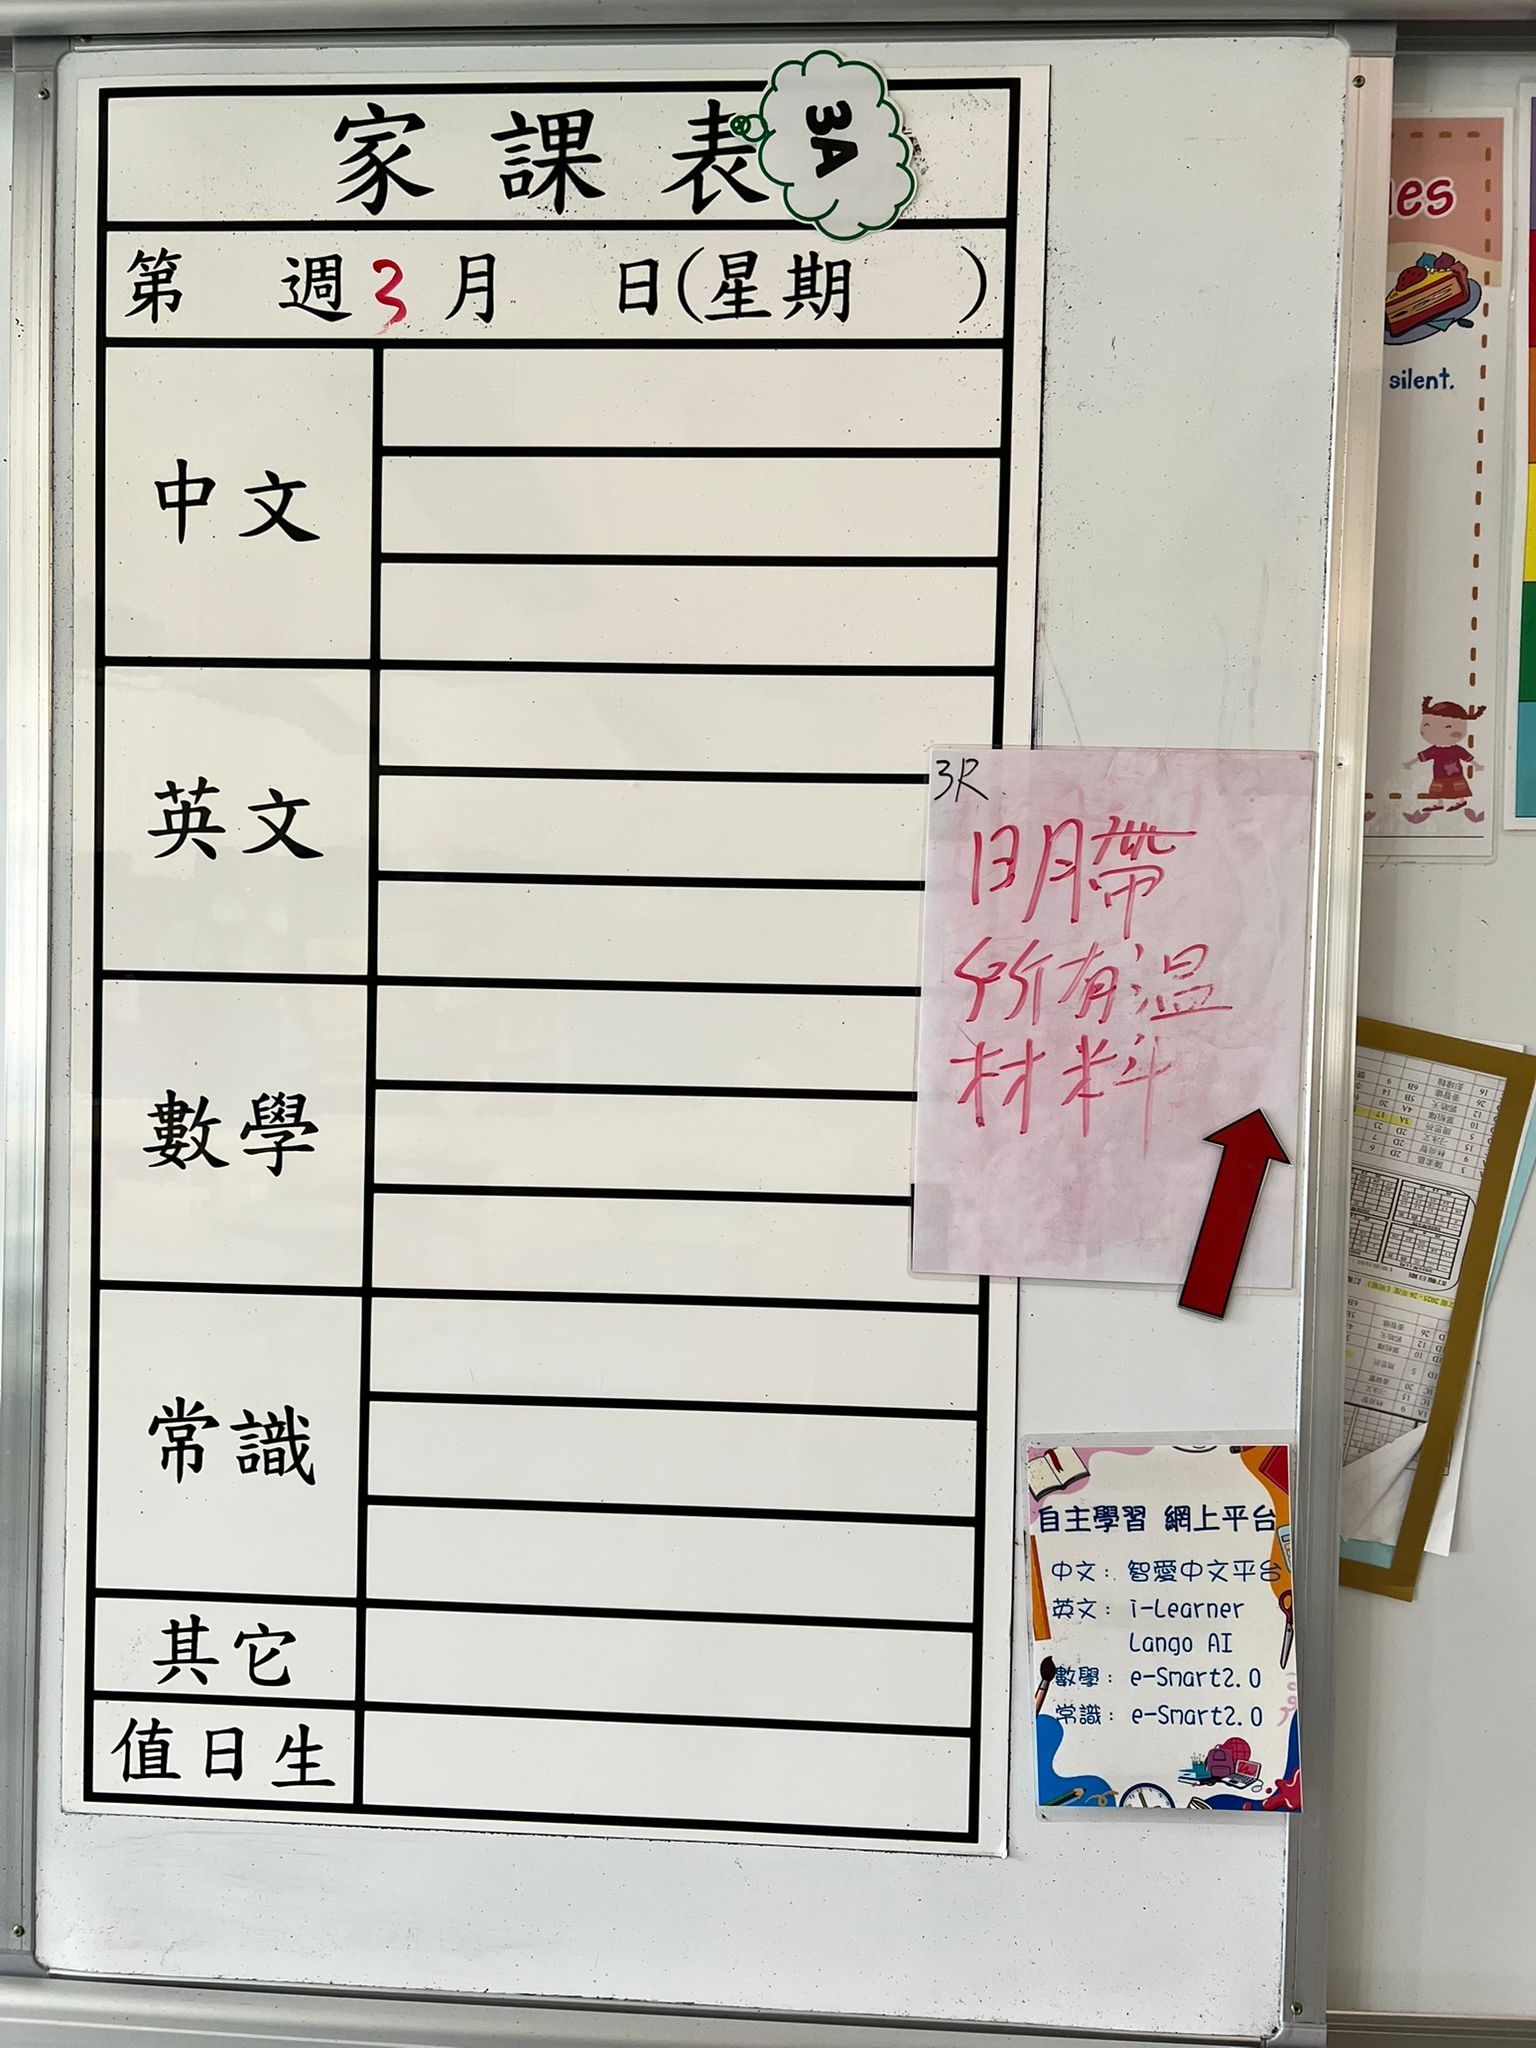 家課表
3A
第 週 3 月 日(星期 )
中文
英文
數學
常識
其它
值日生
3R
明帶
所有温
材料
自主學習 網上平台
中文：智愛中文平台
英文：i-Learner
Lango AI
數學：e-Smart2.0
常識：e-Smart2.0
silent.